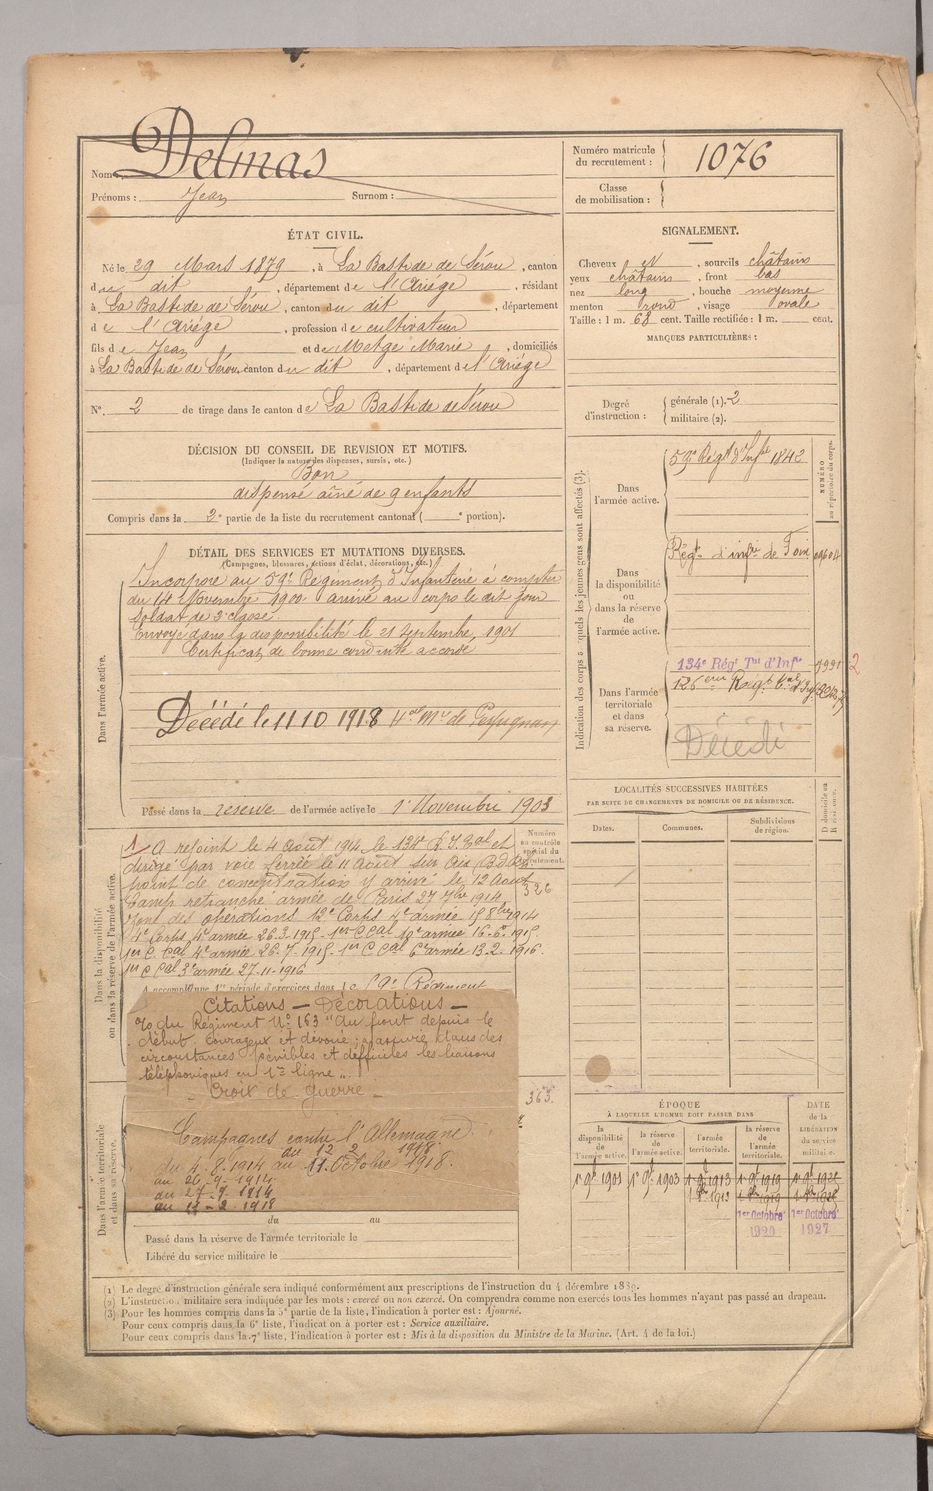 Nom : Delmas
Prénoms : Jean Surnom :
Numéro matricule du recrutement : 1076
Classe de mobilisation :
ÉTAT CIVIL.
Né le 29 Mars 1879, à La Bastide de Sérou, canton
du dit, département de l'Ariège, résidant
à La Bastide de Sérou, canton du dit, département
de l'Ariège, profession de cultivateur
fils de Jean et de Metge Marie, domiciliés
à La Bastide de Sérou, canton du dit, département de l'Ariège
N° 2 de tirage dans le canton de La Bastide de Sérou
SIGNALEMENT.
Cheveux et, sourcils châtains
yeux châtains, front bas
nez long, bouche moyenne
menton rond, visage ovale
Taille : 1 m. 68 cent. Taille rectifiée : 1 m. cent.
MARQUES PARTICULIÈRES :
Degré d'instruction : générale (1). 2
militaire (2).
DÉCISION DU CONSEIL DE REVISION ET MOTIFS.
(Indiquer la nature des dispenses, sursis, etc.)
Bon
dispensé aîné de 9 enfants
Compris dans la 2e partie de la liste du recrutement cantonal ( e portion).
DÉTAIL DES SERVICES ET MUTATIONS DIVERSES.
(Campagnes, blessures, actions d'éclat, décorations, etc.)
Dans l'armée active.
Incorporé au 59e Régiment d'Infanterie à compter
du 14 Novembre 1900. arrivé au corps le dit jour
Soldat de 2e classe.
Envoyé dans la disponibilité le 21 Septembre 1901
Certificat de bonne conduite accordé
Décédé le 11 10 1918
Passé dans la réserve de l'armée active le 1er Novembre 1903
Indication des corps auxquels les jeunes gens sont affectés (3).
NUMÉRO au répertoire du corps.
Dans l'armée active.
59e Régt d'Infie 1842
Dans la disponibilité ou dans la réserve de l'armée active.
Régt d'infie de Foix
Dans l'armée territoriale et dans sa réserve.
134e Régt Tal d'Infie
2
Décédé
Dans la disponibilité ou dans la réserve de l'armée active.
Numéro au contrôle spécial du recrutement.
326
1 A rejoint le 4 Août 1914 le 134e R.I. Tal et
dirigé par voie ferrée le 11 Août sur
point de concentration y arrivé le 12 Août
Camp retranché armée de Paris 27 7bre 1914
Zone des opérations 12e Corps 4e armée
4e armée 26.3.1915
4e armée 26.7.1915. 1er C Cal 6e armée 13.2.1916.
1er C Cal 3e armée 27-11-1916
A accompli une 1re période d'exercices dans le Régiment
Citations — Décorations —
O/ du Régiment N° 163 "Au front depuis le
début. Courageux et dévoué ; a assuré dans des
circonstances pénibles et difficiles les liaisons
téléphoniques en 1re ligne".
- Croix de guerre -
363.
Campagnes contre l'Allemagne
du 12 2 1918
du 4.8.1914 au 11. Octobre 1918.
au 26.9.1914
du 27.9.1914
au 11-2-1918
Dans l'armée territoriale et dans sa réserve.
du au
Passé dans la réserve de l'armée territoriale le
Libéré du service militaire le
LOCALITÉS SUCCESSIVES HABITÉES
PAR SUITE DE CHANGEMENTS DE DOMICILE OU DE RÉSIDENCE.
Dates. Communes. Subdivisions de région.
ÉPOQUE
À LAQUELLE L'HOMME DOIT PASSER DANS
DATE de la LIBÉRATION du service militaire.
la disponibilité de l'armée active.
la réserve de l'armée active.
l'armée territoriale.
la réserve de l'armée territoriale.
1er Octobre 1920
1er Octobre 1927
(1) Le degré d'instruction générale sera indiqué conformément aux prescriptions de l'instruction du 4 décembre 1889.
(2) L'instruction militaire sera indiquée par les mots : exercé ou non exercé. On comprendra comme non exercés tous les hommes n'ayant pas passé au drapeau.
(3) Pour les hommes compris dans la 5e partie de la liste, l'indication à porter est : Ajourné.
Pour ceux compris dans la 6e liste, l'indication à porter est : Service auxiliaire.
Pour ceux compris dans la 7e liste, l'indication à porter est : Mis à la disposition du Ministre de la Marine. (Art. 4 de la loi.)